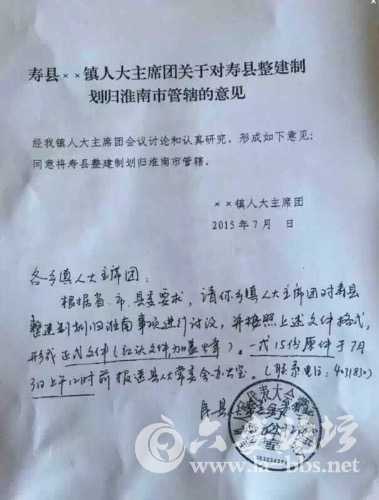 寿县××镇人大主席团关于对寿县整建制
划归淮南市管辖的意见
经我镇人大主席团会议讨论和认真研究，形成如下意见：
同意将寿县整建制划归淮南市管辖。
××镇人大主席团
2015年7月 日
各乡镇人大主席团：
根据省、市、县委要求，请你乡镇人大主席团对寿县
整建制划归淮南事项进行讨论，并按照上述文件格式，
形成正式文件（红头文件加盖公章）。一式15份原件于7月
日上午12时前报送县人大常委会办公室。（联系电话：4031830）
寿县
代表大会
六安论坛
www.la-bbs.net